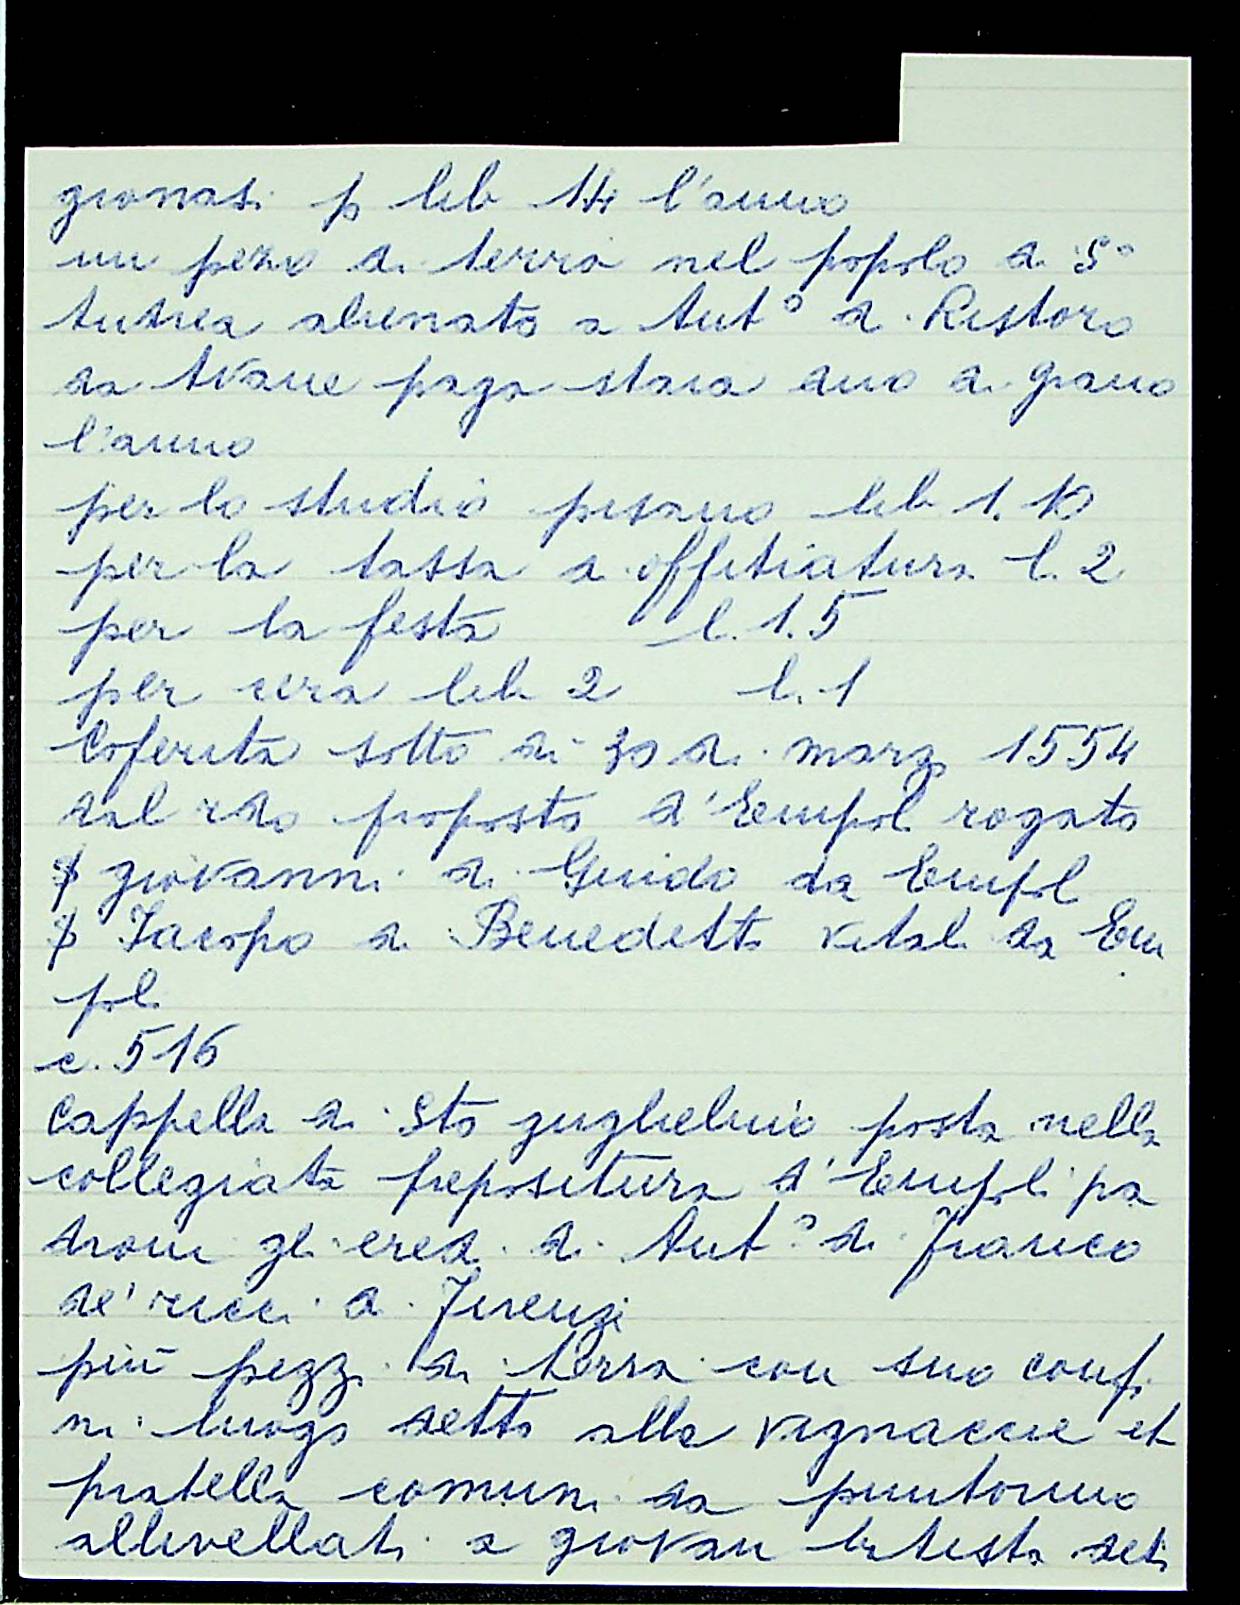 gionasi p lib 14 l'anno
un pezzo di terra nel popolo di S°
Andrea alienato a Ant° di Ristoro
da Avane paga staia duo di grano
l'anno
per lo studio pisano lib 1.10
per la tassa di offitiatura l. 2
per la festa l. 1.5
per cera lib 2 l. 1
Coferita sotto di 30 di marzo 1554
dal rdo proposto d'Empoli rogato
giovanni di Guido da Empoli
Iacopo di Benedetto vitali da Em
poli
c. 516
Cappella di Sto guglielmo posta nella
collegiata prepositura d'Empoli pa
droni gli eredi di Ant° di Franco
de' ricci di Firenze
più pezzi di terra con suo confi
ni luogo detto alle vignaccie et
pratella comuni da puntormo
allivellati a giovan batista del